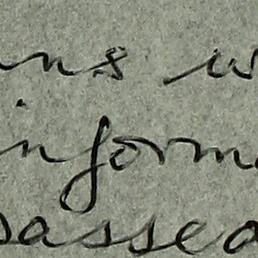 ns w
inform
passed